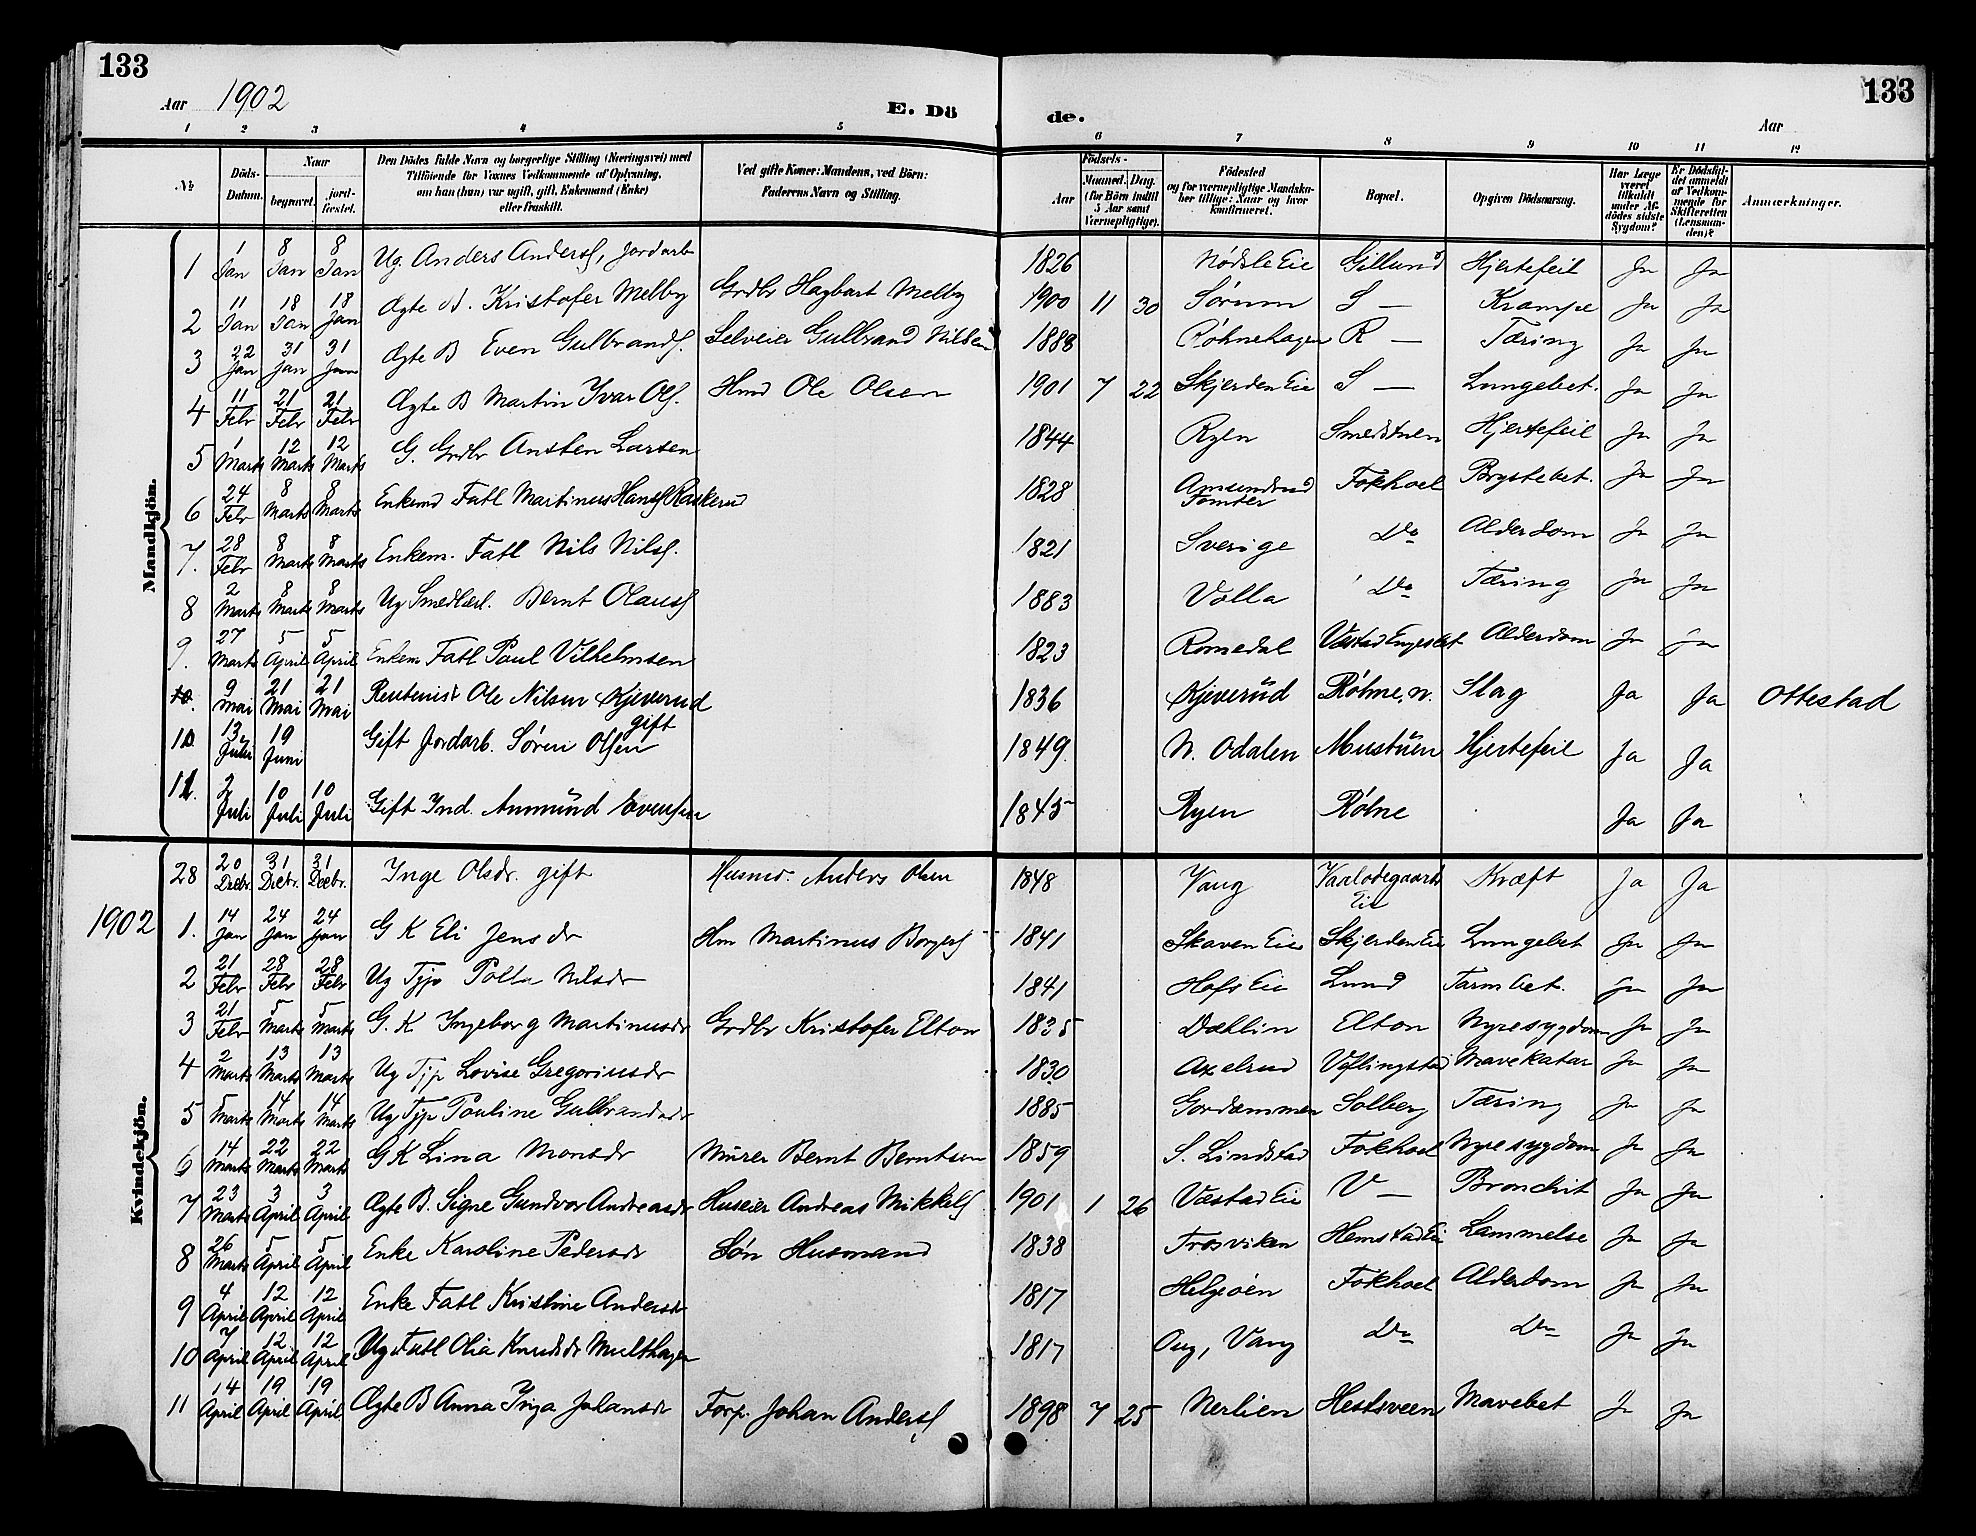 133
133
Aar 1902
E. Dö
de.
Aar
1 2 3 4 5 6 7 8 9 10 11 12
№
Döds-Datum.
Naar begravet. jordfæstet.
Den Dödes fulde Navn og borgerlige Stilling (Næringsvei) med Tilföiende for Voxnes Vedkommende af Oplysning, om han (hun) var ugift, gift, Enkemand (Enke) eller fraskilt.
Ved gifte Koner: Mandens, ved Börn: Faderens Navn og Stilling.
Födsels-
Aar Maaned. Dag. (for Börn indtil 5 Aar samt Værnepligtige).
Födested og for værnepligtige Mandskaber tillige: Naar og hvor konfirmeret.
Bopæl.
Opgiven Dödsaarsag.
Har Læge været tilkaldt under Afdödes sidste Sygdom?
Er Dödsfaldet anmeldt af Vedkommende for Skifteretten (Lensmanden)?
Anmærkninger.
Mandkjön.
1 1 Jan 8 Jan 8 Jan Ug. Anders Anders, Jordarb 1826 Nødsle Eie Gillund Hjertefeil Ja Ja
2 11 Jan 18 Jan 18 Jan Ægte B. Kristofer Melby Grdbr Hagbart Melby 1900 11 30 Sørum S — Krampe Ja Ja
3 22 Jan 31 Jan 31 Jan Ægte B Even Gulbrands. Selveier Gulbrand Nilsen 1888 Røhnehagen R — Tæring Ja Ja
4 11 Febr 21 Febr 21 Febr Ægte B Martin Ivar Ols. Hmd Ole Olsen 1901 7 22 Skjerden Eie S — Lungebet. Ja Ja
5 1 Marts 12 Marts 12 Marts G. Grdbr Ansten Larsen 1844 Ryen Smedstuen Hjertefeil Ja Ja
6 24 Febr 8 Marts 8 Marts Enkemd Fatl Martinus Hans Raskerud 1828 Amundrud Tomter Fokhoel Brystebet. Ja Ja
7. 28 Febr 8 Marts 8 Marts Enkem. Fatl Nils Nils. 1821 Sverige Do Alderdom Ja Ja
8 2 Marts 8 Marts 8 Marts Ug Smedlærl. Bernt Olaus 1883 Volla Do Tæring Ja Ja
9. 27 Marts 5 April 5 April Enkem Fatl Paul Vilhelmsen 1823 Romedal Væstad Engeslet Alderdom Ja Ja
10. 9 Mai 21 Mai 21 Mai Rentenist Ole Nilsen Kjeverud 1836 Kjeverud Röhne, n. Slag Ja Ja Ottestad
gift
10. 13 Juli 19 Juni Gift Jordarb. Sören Olsen 1849. N. Odalen Mustüen Hjertefeil Ja Ja
11. 2 Juli 10 Juli 10 Juli Gift Ind. Ammünd Evensen 1845 Ryen Röhne Ja Ja
Kvindekjön.
28 20 Decbr. 31 Decbr. 31 Decbr. Inge Olsdr. gift Husmd. Anders Olsen 1848 Vang Vaalodegaards Eie Kræft Ja Ja
1902 1. 14 Jan 24 Jan 24 Jan G K Eli Jensdr Hm Martinus Borgers 1841 Skaven Eie Skjerden Eie Lungebet Ja Ja
2 21 Febr 28 Febr 28 Febr Ug Tjp Polta Nilsdr 1841 Hofs Eie Lund Tarmbet. Ja Ja
3 21 Febr 5 Marts 5 Marts G. K Ingeborg Martinusdr Grdbr Kristofer Elton 1835 Dæhlin Elton Nyresygdom Ja Ja
4 2 Marts 13 Marts 13 Marts Ug Tjp Lovise Gregoriusdr 1830 Axelrud Viflingstad Mavekatar Ja Ja
5 5 Marts 14 Marts 14 Marts Ug Tjp Pauline Gulbrandsdr 1885 Gordammen Solberg Tæring Ja Ja
6 14 Marts 22 Marts 22 Marts G K Lina Monsdr Murer Bernt Berntsen 1859 S. Lindstad Fokhoel Nyresygdom Ja Ja
7 23 Marts 3 April 3 April Ægte B. Signe Gundvor Andreasdr Huseier Andreas Mikkels 1901 1 26 Væstad Eie V — Bronchit Ja Ja
8 26 Marts 5 April 5 April Enke Karoline Pedersdr Søn Husmand 1838 Trosviken Hemstad Ei Lammelse Ja Ja
9 4 April 12 April 12 April Enke Fatl Kristine Andersdr 1817 Helgøen Fokhoel Alderdom Ja Ja
10 7 April 12 April 12 April Ug Fatl Olia Knudsdr Multhagen 1817 Oug, Vang Do Do Ja Ja
11 14 April 19 April 19 April Ægte B Anna Inga Johansdr Forp. Johan Anders 1898 7 25 Nerlien Hestsveen Mavebet Ja Ja